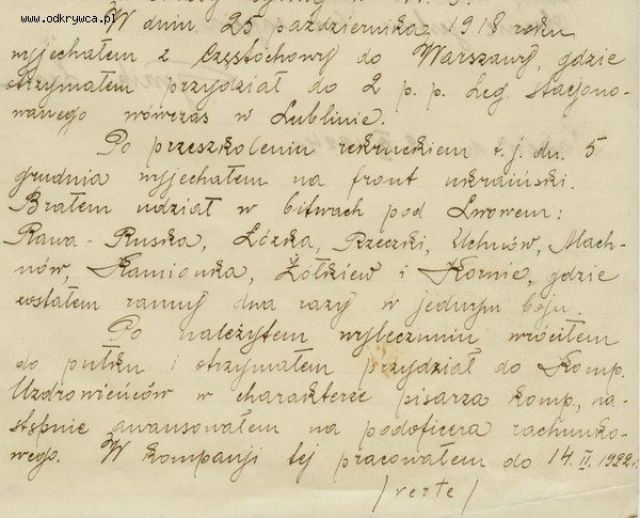 www.odkrywca.pl
W dniu 25 października 1918 roku
wyjechałem z Częstochowy do Warszawy, gdzie
otrzymałem przydział do 2 p. p. Leg. Stacjono-
wanego wówczas w Lublinie.
Po przeszkoleniu rekruckiem t. j. dn. 5
grudnia wyjechałem na front ukraiński.
Brałem udział w bitwach pod Lwowem:
Rawa-Ruska, Łózka, Rzeczki, Uchnów, Mach-
nów, Kamionka, Żółkiew i Kornie, gdzie
zostałem ranny dwa razy w jednym boju.
Po należytem wyleczeniu wróciłem
do pułku i otrzymałem przydział do Komp.
Uzdrowieńców w charakterze pisarza komp., na-
stępnie awansowałem na podoficera rachunko-
wego. W kompanji tej pracowałem do 14. II. 1922 r.
/verte/